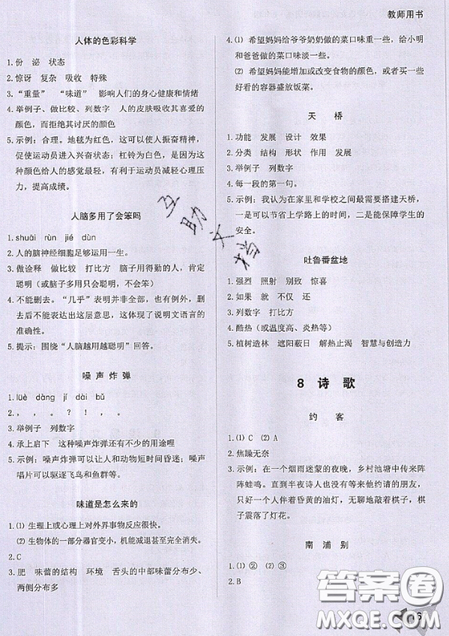 教师用书
人体的色彩科学
1. 份 泌 状态
2. 惊讶 复杂 吸收 特殊
3. “重量” “味道” 影响人们的身心健康和情绪
4. 举例子、做比较、列数字 人的皮肤吸收其喜爱的
颜色，而拒绝其讨厌的颜色
5. 示例：合理。地毯为红色，这可以使人振奋精神，
促使运动员进入兴奋状态；杠铃为白色，是因为这
种颜色给人的感觉最轻，有利于运动员减轻心理压
力，提高成绩。
人脑多用了会笨吗
1. shuāi rùn jié dùn
2. 人脑的神经细胞足够运用一生。
3. 做诠释 做比较 打比方 脑子用得勤的人，肯定
聪明（或脑子多用只会聪明，不会笨）
4. 不能删去。“几乎”表明并非全部，也有例外，删
去后不能表达出这层意思，这里体现了说明文语言的
准确性。
5. 提示：围绕“人脑越用越聪明”回答。
噪声炸弹
1. lüè dàng jí dài bǔ
2. ， 。 ， ？ ， ， 。
3. 举例子 列数字
4. 承上启下 这种噪声炸弹还有不少的用途哩
5. 示例：噪声可以让人和动物短时间昏迷；噪声
唱片可以驱逐飞鸟和鱼群等。
味道是怎么来的
1. ⑴ 生理上或心理上对外界事物反应很快。
⑵ 生物体的一部分器官变小，机能减退甚至完全消失。
2. C
3. 肥 味蕾的结构 环境 舌头的中部味蕾比较少、
两侧分布多
⑵ 希望妈妈给爷爷奶奶做的菜口味重一些，给小明
和爸爸做的菜口味淡一些。
⑶ 希望妈妈能增加或改变食物的颜色，或者买一些好
看的容器盛放饭菜。
天桥
1. 功能 发展 设计 效果
2. 分类 结构 形状 作用 发展
3. 举例子 列数字
4. 每一段的第一句。
5. 示例：我认为在家里和学校之间最需要搭建天桥，
一是可以节省上学路上的时间，二是能保障学生的
安全。
吐鲁番盆地
1. 强烈 照射 别致 惊喜
2. 如果 就 不仅 还
3. 列数字 打比方
4. 酷热（或温度高、炎热等）
5. 植树造林 遮阳蔽日 解热止渴 智慧与创造力
8 诗歌
约客
1. ⑴ ② ⑵ A
2. 焦躁无奈
3. 示例：在一个烟雨迷蒙的夜晚，乡村池塘中传来阵
阵蛙鸣。直到半夜诗人也没有等来他约请的朋友，
只好一个人伴着昏黄的油灯，无聊地敲着棋子，棋
子震落了灯花。
南浦别
1. ⑴ ② ⑵ ③
2. B
互助文档
答案圈
MXQE.COM